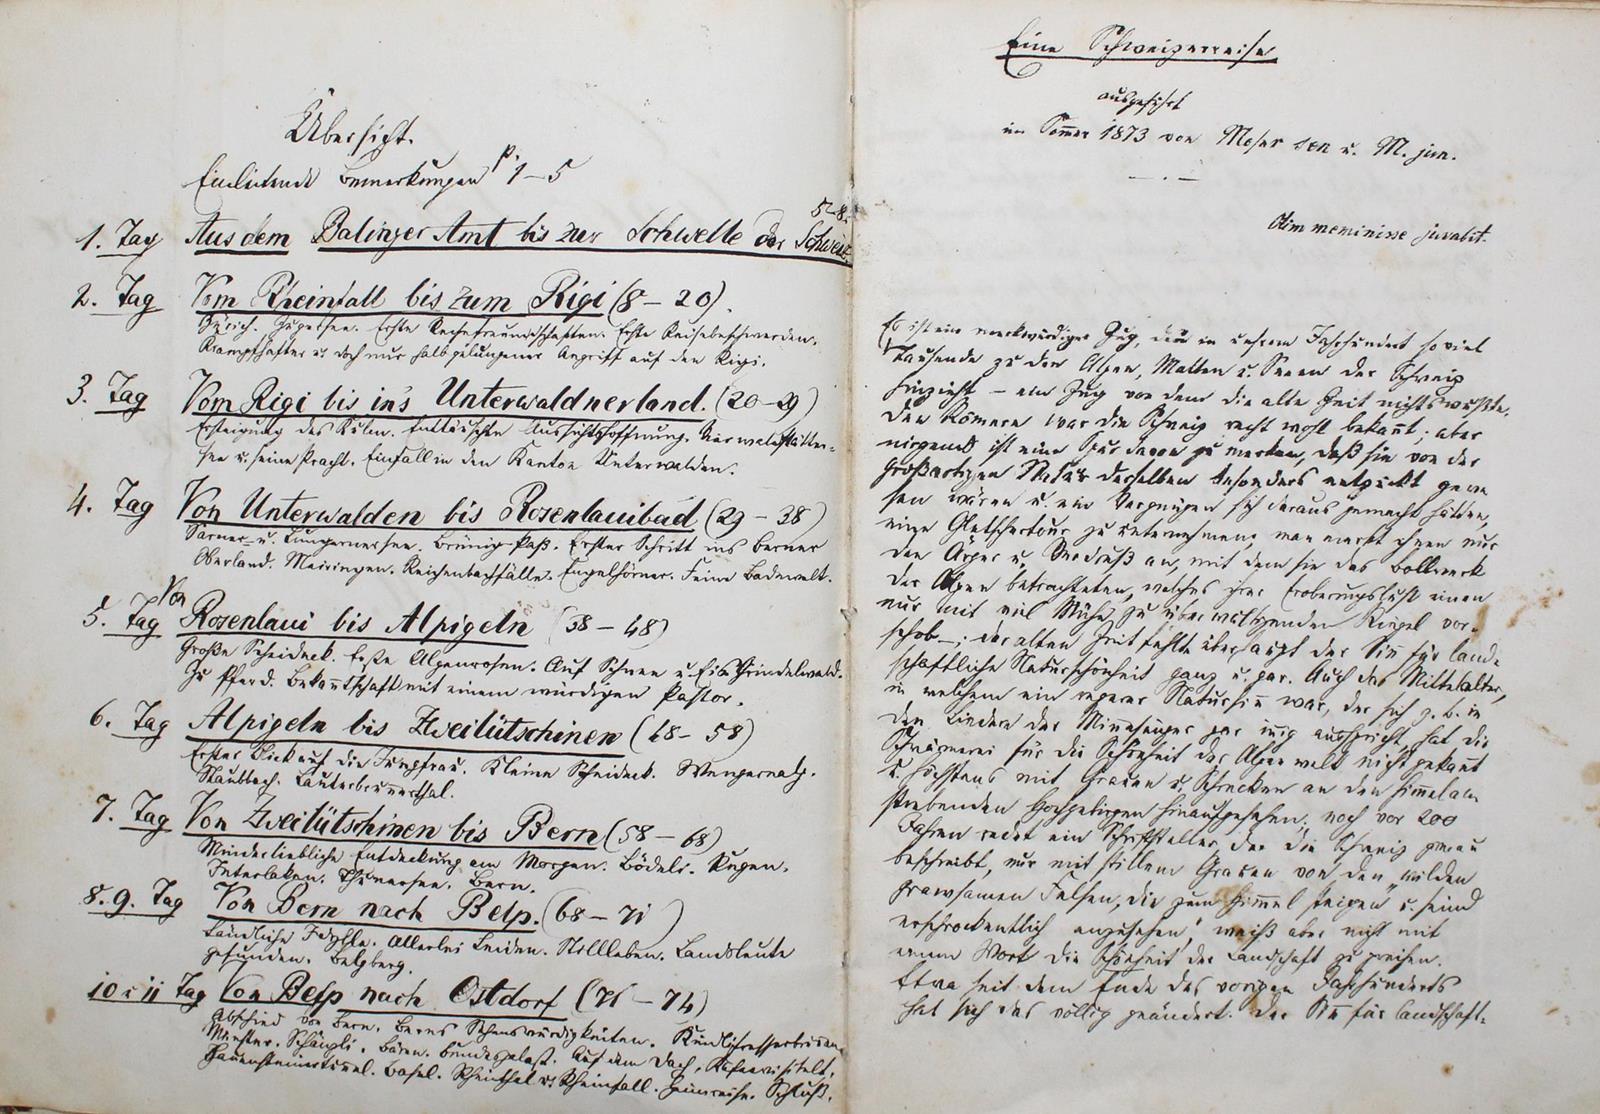 Übersicht.
Einleitende Bemerkungen p. 1–5
5–8.
1. Tag Aus dem Balinger Amt bis zur Schwelle der Schweiz.
2. Tag Vom Rheinfall bis zum Rigi (8–20).
Zürich. Zugersee. Erste Reisefreundschaften. Erste Reisebeschwerden.
Krampfhafter u. doch nur halb gelungener Angriff auf den Rigi.
3. Tag Vom Rigi bis in's Unterwaldnerland. (20–29)
Ersteigung des Kulm. Enttäuschte Aussichtshoffnung. Vierwaldstätter-
see u. seine Pracht. Einfall in den Kanton Unterwalden.
4. Tag Von Unterwalden bis Rosenlauibad (29–38)
Sarner- u. Lungernersee. Brünig-Paß. Erster Schritt ins Berner
Oberland. Meiringen. Reichenbachfälle. Engelhörner. Feine Badewelt.
5. Tag Von Rosenlaui bis Alpigeln (38–48)
Große Scheideck. Erste Alpenrosen. Auf Schnee u. Eis. Grindelwald.
Zu Pferd. Bekanntschaft mit einem würdigen Pastor.
6. Tag Alpigeln bis Zweilütschinen (48–58)
Erster Blick auf die Jungfrau. Kleine Scheideck. Wengernalp.
Staubbach. Lauterbrunnerthal.
7. Tag Von Zweilütschinen bis Bern (58–68)
Minderliebliche Entdeckung am Morgen. Bödeli. Rugen.
Interlaken. Thunersee. Bern.
8. 9. Tag Von Bern nach Belp. (68–71)
Ländliche Idylle. Allerlei Leiden. Stillleben. Landsleute
gefunden. Belpberg.
10 u 11 Tag Von Belp nach Ostdorf (71–74)
Abschied von Bern. Berns Sehenswürdigkeiten.
Münster. Schänzli. Bären. Bundespalast. Auf dem Dach.
Hauensteintunnel. Basel. Rheinthal u. Rheinfall. Heimreise. Schluß.
Eine Schweizerreise
ausgeführt
im Sommer 1873 von Moser sen u. M. jun.
Olim meminisse juvabit.
Es ist ein merkwürdiger Zug, der in unserem Jahrhundert so viel
Tausende zu den Alpen, Matten u. Seen der Schweiz
hinzieht – ein Zug von dem die alte Zeit nichts wußte.
Den Römern war die Schweiz recht wohl bekannt; aber
nirgends ist eine Spur davon zu merken, daß sie von der
großartigen Natur derselben besonders entzückt gewe
sen wären u. ein Vergnügen sich daraus gemacht hätten,
eine Gletschertour zu unternehmen; man merkt ihnen nur
den Ärger u. Verdruß an, mit dem sie das Bollwerk
der Alpen betrachteten, welches ihrer Eroberungslust einen
nur mit viel Mühe zu überwältigenden Riegel vor-
schob –; der alten Zeit fehlte überhaupt der Sinn für land-
schaftliche Naturschönheit ganz u. gar. Auch das Mittelalter,
in welchem ein regerer Natursinn war, der sich z. B. in
den Liedern der Minnesänger gar innig ausspricht, hat die
Schwärmerei für die Schönheit der Alpenwelt nicht gekannt
u. höchstens mit Grauen u. Schrecken an den himmelan
strebenden Hochgebirgen hinaufgesehen; noch vor 200
Jahren redet ein Schriftsteller, der die Schweiz genau
beschreibt, nur mit stillem Grauen von den „wilden
grawsamen Felsen, die zum Himmel steigen u. seind
erschrockentlich anzusehen", weiß aber nicht mit
einem Wort die Schönheit der Landschaft zu preisen.
Etwa seit dem Ende des vorigen Jahrhunderts
hat sich das völlig geändert. Der Sinn für landschaft-